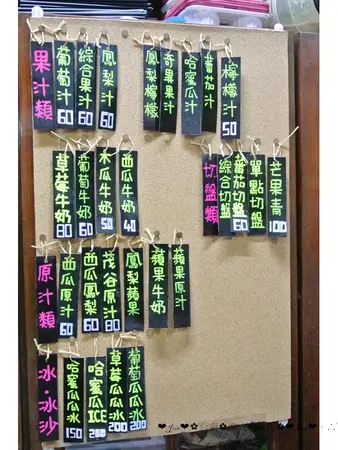 果汁類
葡萄汁 60
綜合果汁 60
鳳梨汁 60
鳳梨檸檬
奇異果汁
哈蜜瓜汁
蕃茄汁
檸檬汁 50
草莓牛奶 80
葡萄牛奶 60
木瓜牛奶 50
西瓜牛奶 40
切盤類
綜合切盤
蕃茄切盤 60
單點切盤
芒果青 100
原汁類
西瓜原汁 60
西瓜鳳梨 60
茂谷原汁 80
鳳梨蘋果
蘋果牛奶
蘋果原汁
冰.冰沙
哈蜜瓜瓜冰 150
哈蜜瓜ICE 200
草莓瓜瓜冰 200
葡萄瓜瓜冰 200